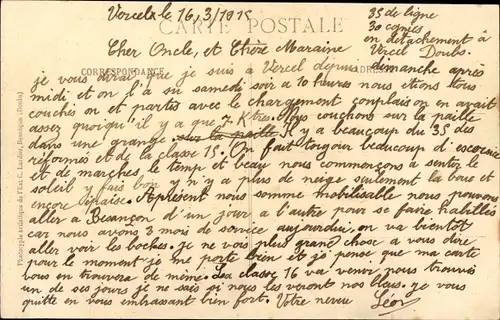 Vercel le 16/3/1915
CARTE POSTALE
35 de ligne
30 compies
en détachement à
Vercel Doubs.
Cher Oncle, et Chère Maraine
CORRESPONDANCE
je vous dirai que je suis à Vercel depuis dimanche après
midi et on l'a su samedi soir a 10 heures nous étions tous
couchés on et partis avec le chargement conplais on en avait
assez quoiqu'il y a que 7 Ktres. Nous couchons sur la paille
dans une grange sur la paille Il y a beaucoup du 35 des
réformés et de la classe 15. On fait toujour beaucoup d'escercice
et de marches le temp et beau nous commençons a sentir le
soleil y fais bon y n'y a plus de neige seulement la boue et
encore épaise. Apresent nous somme mobilisable nous pouvons
aller a Besançon d'un jour a l'autre pour se faire habillés
car nous avons 3 mois de service aujourdui, on va bientôt
aller voir les boches. je ne vois plus grand chose a vous dire
pour le moment je me porte bien et je pense que ma carte
vous en trouvera de même. Les classes 16 va venir nous trouvés
un de ses jours je ne sais si nous les veront nos bleus. je vous
quitte en vous embrassant bien fort. Votre neveu Léon
Phototypie artistique de l'Est, C. Lardier, Besançon (Doubs)